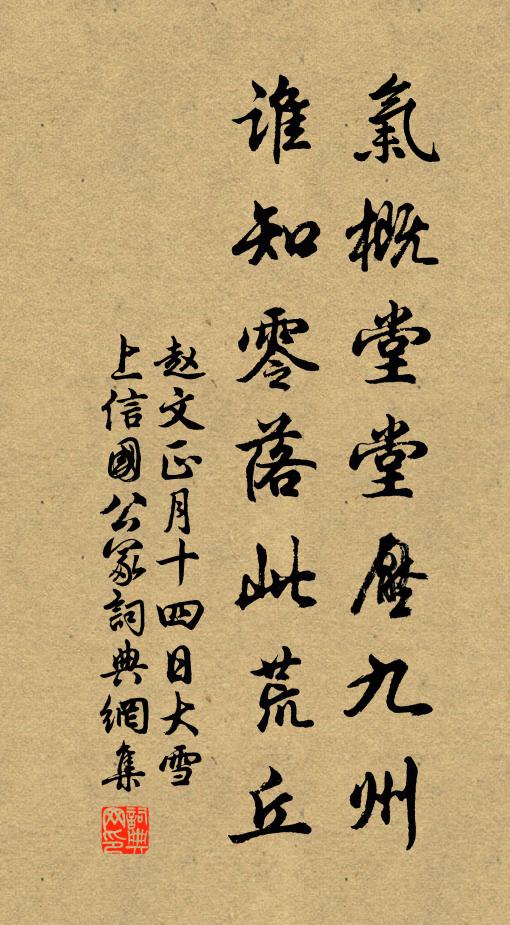 氣概堂堂壓九州
谁知零落此荒丘
赵文正月十四日大雪
上信國公冢詞典網集
詞典网印